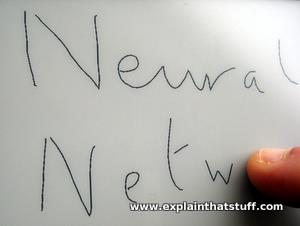 Neural
Netw
www.explainthatstuff.com